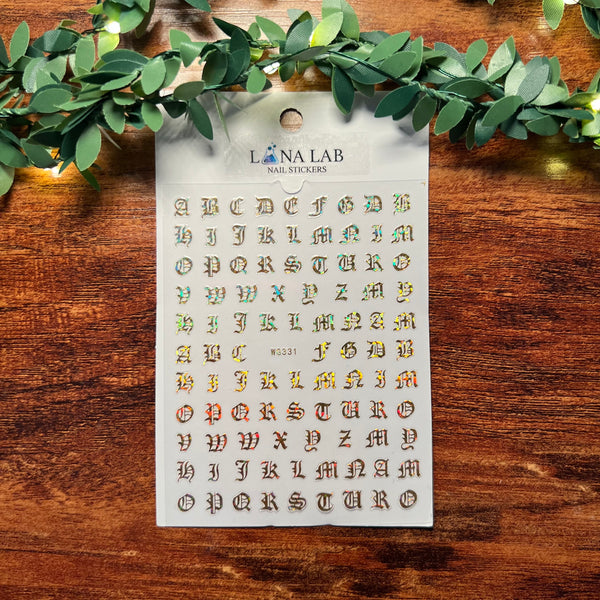 LANA LAB
NAIL STICKERS
A B C D E F G D B
H I J K L M N I M
O P Q R S T U R O
V W W X Y Z M Y
H I J K L M N A M
A B C W3331 F G D B
H I J K L M N I M
O P Q R S T U R O
V W W X Y Z M Y
H I J K L M N A M
O P Q R S T U R O